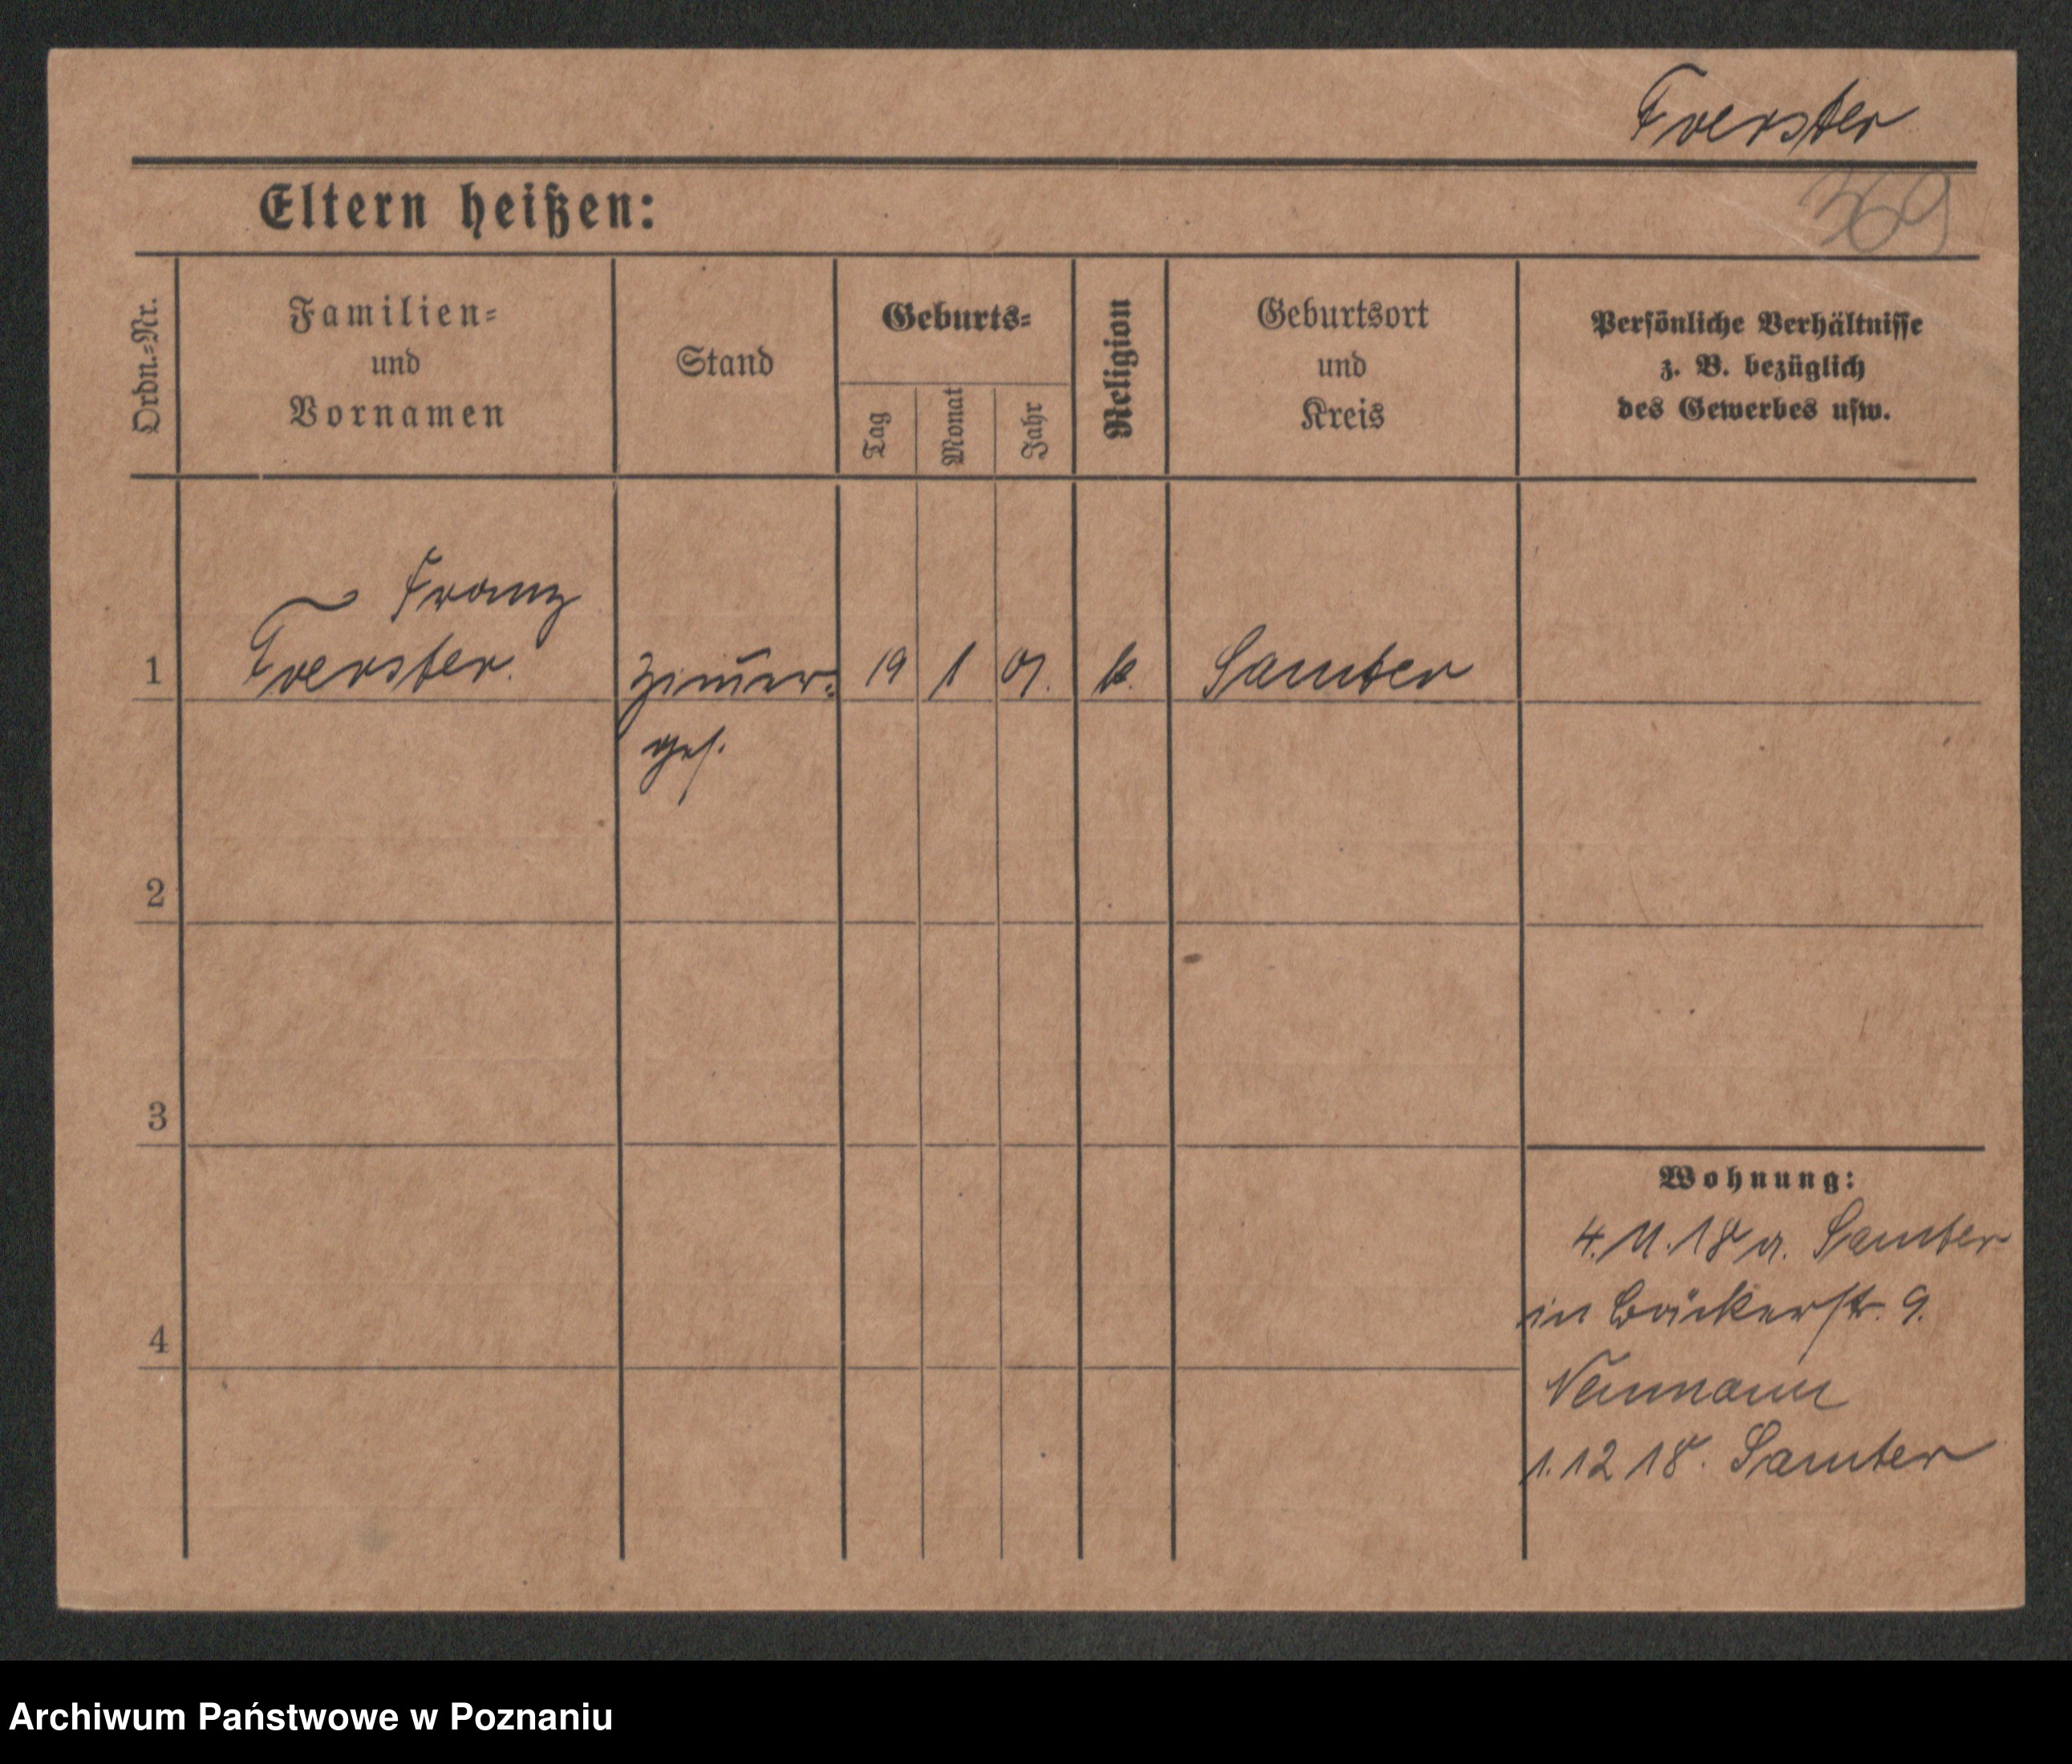 Foerster
369
Eltern heißen:
Ordn.-Nr.
Familien-
und
Vornamen
Stand
Geburts-
Tag
Monat
Jahr
Religion
Geburtsort
und
Kreis
Persönliche Verhältnisse
z. B. bezüglich
des Gewerbes usw.
Franz
1 Foerster. Zim̅er- 19 1 01. k. Samter
ges.
2
3
4
Wohnung:
4.11.18 a. Samter
in Bäckerstr. 9.
Neumann
1.12 18. Samter
Archiwum Państwowe w Poznaniu